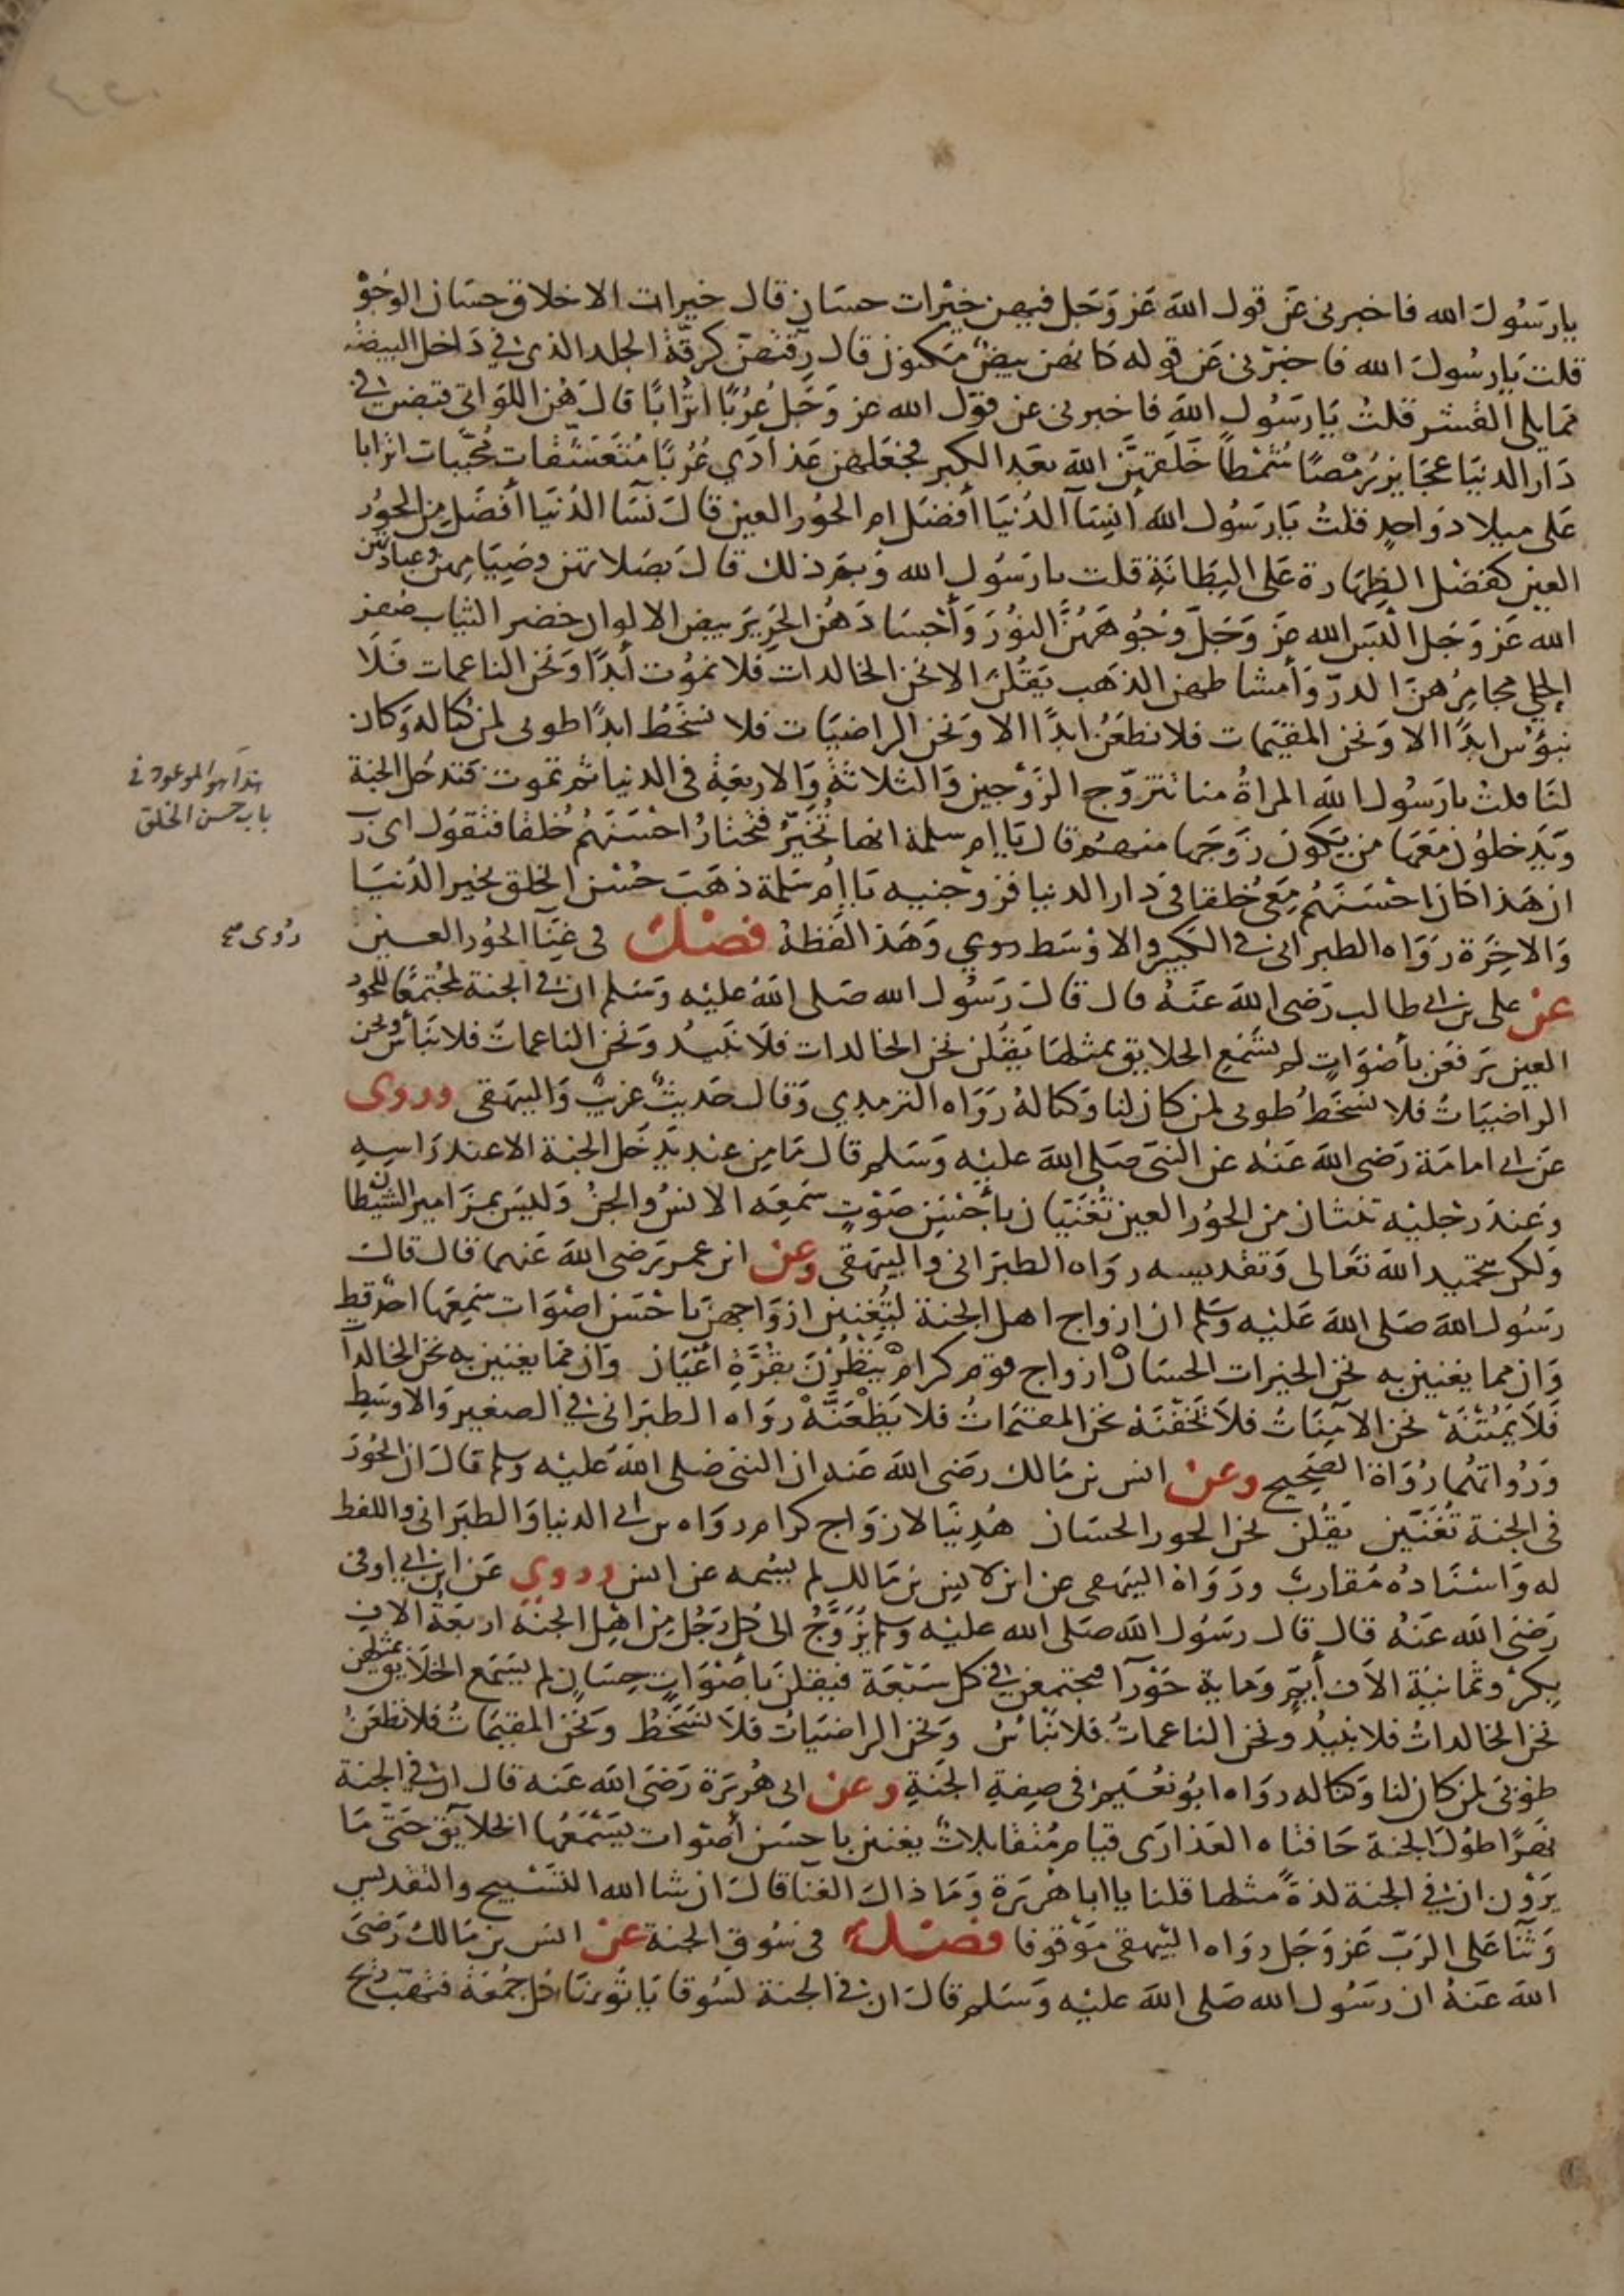 يارسول الله فاخبرنى عن قول الله عز وجل فيهن خيرات حسان قال خيرات الاخلاق حسان الوجو
قلت يارسول الله فاخبرنى عن قوله كانهن بيض مكنون قال رقتهن كرقة الجلد الذى فى داخل البيضة
مما يلى القشر قلت يارسول الله فاخبرنى عن قول الله عز وجل عُرُبًا اترابًا قال هن اللواتى قبضن فى
دار الدنيا عجايز رُمْصًا شُمْطًا خلقهن الله بعد الكبر فجعلهن عذارى عُرُبًا متعشقات محببات اترابا
على ميلاد واحد قلت يارسول الله أنسآ الدنيا أفضل ام الحور العين قال نسا الدنيا أفضل من الحور
العين كفضل الظهارة على البطانة قلت يارسول الله وبم ذلك قال بصلاتهن وصيامهن وعبادتهن
الله عز وجل البس الله عز وجل وجوههن النور وأجسادهن الحرير بيض الالوان خضر الثياب صفر
الحلى مجامرهن الدر وأمشاطهن الذهب يقلن الا نحن الخالدات فلا نموت أبدًا ونحن الناعمات فلا
نبؤس ابدًا الا ونحن المقيمات فلا نظعن ابدًا الا ونحن الراضيات فلا نسخط ابدًا طوبى لمن كنا له وكان
لنا قلت يارسول الله المراة منا تتزوج الزوجين والثلاثة والاربعة فى الدنيا ثم تموت فتدخل الجنة
هذا هو الموعود فى
باب حسن الخلق
ويدخلون معها من يكون زوجها منهم قال يا ام سلمة انها تُخَيّر فتختار احسنهم خلقا فتقول اى رب
ان هذا كان احسنهم معى خلقا فى دار الدنيا فزوجنيه يا ام سلمة ذهب حسن الخلق بخير الدنيا
والاخرة رواه الطبرانى فى الكبير والاوسط وهذا لفظه فصل فى غنآ الحور العين
عن على بن ابى طالب رضى الله عنه قال قال رسول الله صلى الله عليه وسلم ان فى الجنة لمجتمعًا للحور
العين يرفعن بأصواتٍ لم يسمع الخلايق بمثلها يقلن نحن الخالدات فلا نبيد ونحن الناعمات فلا نبأس ونحن
الراضيات فلا نسخط طوبى لمن كان لنا وكنا له رواه الترمذي وقال حديث غريب والبيهقى وروى
عن ابى امامة رضى الله عنه عن النبى صلى الله عليه وسلم قال ما من عبد يدخل الجنة الا عند راسه
وعند رجليه ثنتان من الحور العين تغنيان بأحسن صوت سمعه الانس والجن وليس بمزامير الشيطان
ولكن بتحميد الله تعالى وتقديسه رواه الطبرانى والبيهقى وعن ابن عمر رضى الله عنهما قال قال
رسول الله صلى الله عليه وسلم ان ازواج اهل الجنة ليغنين ازواجهن باحسن اصوات سمعها احد قط
وان مما يغنين به نحن الخيرات الحسان ازواج قوم كرام ينظرن بقرة اعيان وان مما يغنين به نحن الخالدات
فلا يمتنه نحن الآمنات فلا تخفنه نحن المقيمات فلا يظعنه رواه الطبرانى فى الصغير والاوسط
ورواتهما رواة الصحيح وعن انس بن مالك رضى الله عنه ان النبى صلى الله عليه وسلم قال ان الحور
فى الجنة تغنين يقلن نحن الحور الحسان هدينا لازواج كرام رواه بن ابى الدنيا والطبرانى واللفظ
له واسناده مقارب ورواه البيهقى عن ابن لانس بن مالك لم يسمه عن انس وروي عن ابن ابى اوفى
رضى الله عنه قال قال رسول الله صلى الله عليه وسلم يزوج الى كل رجل من اهل الجنة اربعة الاف
بكر وثمانية الاف أيم وماية حورآ فيجتمعن فى كل سبعة فيقلن بأصوات حسان لم يسمع الخلايق بمثلهن
نحن الخالدات فلا نبيد ونحن الناعمات فلا نبأس ونحن الراضيات فلا نسخط ونحن المقيمات فلا نظعن
طوبى لمن كان لنا وكنا له رواه ابو نعيم فى صفة الجنة وعن ابى هريرة رضى الله عنه قال ان فى الجنة
نهرًا طول الجنة حافتاه العذارى قيام متقابلات يغنين باحسن أصوات يسمعها الخلايق حتى ما
يرون ان فى الجنة لذة مثلها قلنا يا ابا هريرة وما ذاك الغنا قال ان شا الله التسبيح والتقديس
وثنا على الرب عز وجل رواه البيهقى موقوفا فصل فى سوق الجنة عن انس بن مالك رضى
الله عنه ان رسول الله صلى الله عليه وسلم قال ان فى الجنة لسوقا ياتونها كل جمعة فتهب ريح